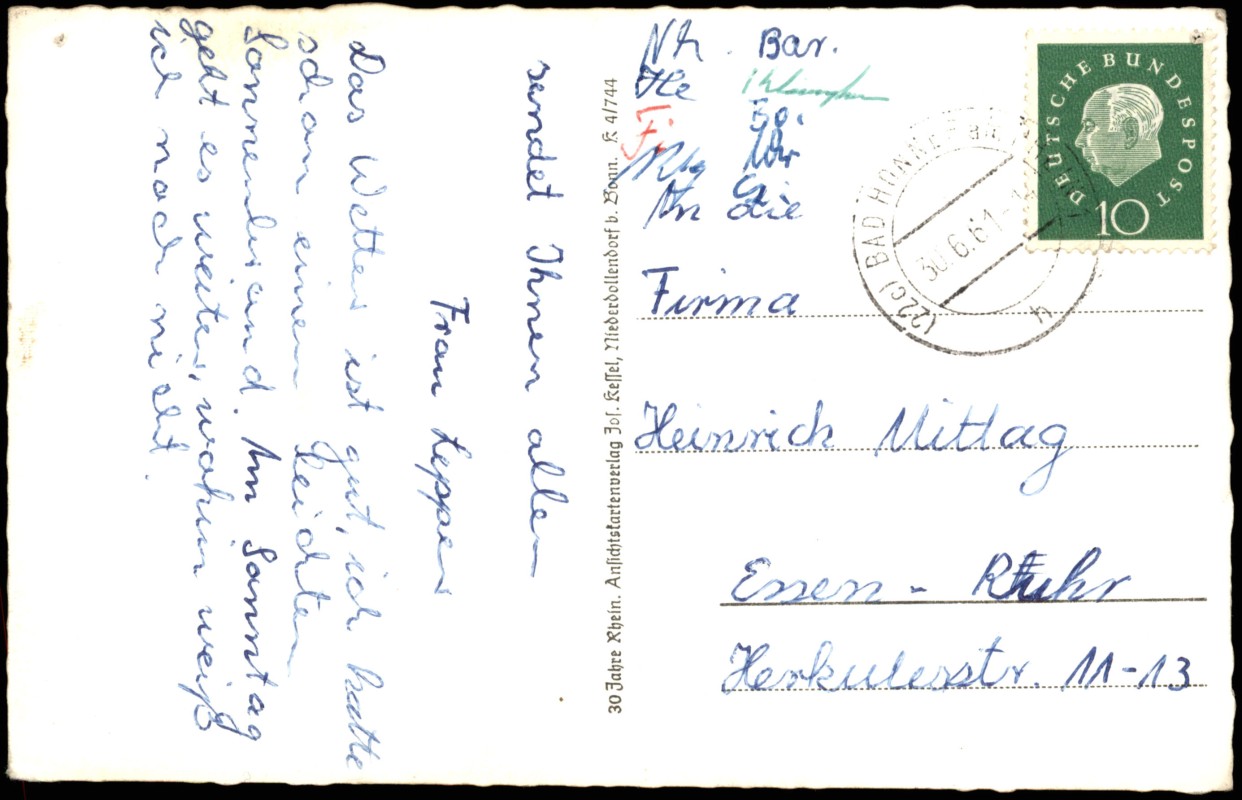 sendet Ihnen allen
Frau Leppers
Das Wetter ist gut, ich hatte
schon einen leichten
Sonnenbrand. Am Sonntag
geht es weiter, wohin weiß
ich noch nicht.
30 Jahre Rhein. Ansichtskartenverlag Jos. Kessel, Niederdollendorf b. Bonn. K 4/744
Bar.
He
Fi
An die
Firma
Heinrich Mittag
Essen - Ruhr
Herkulesstr. 11-13
DEUTSCHE BUNDESPOST
10
(22c) BAD HONNEF
30.6.61